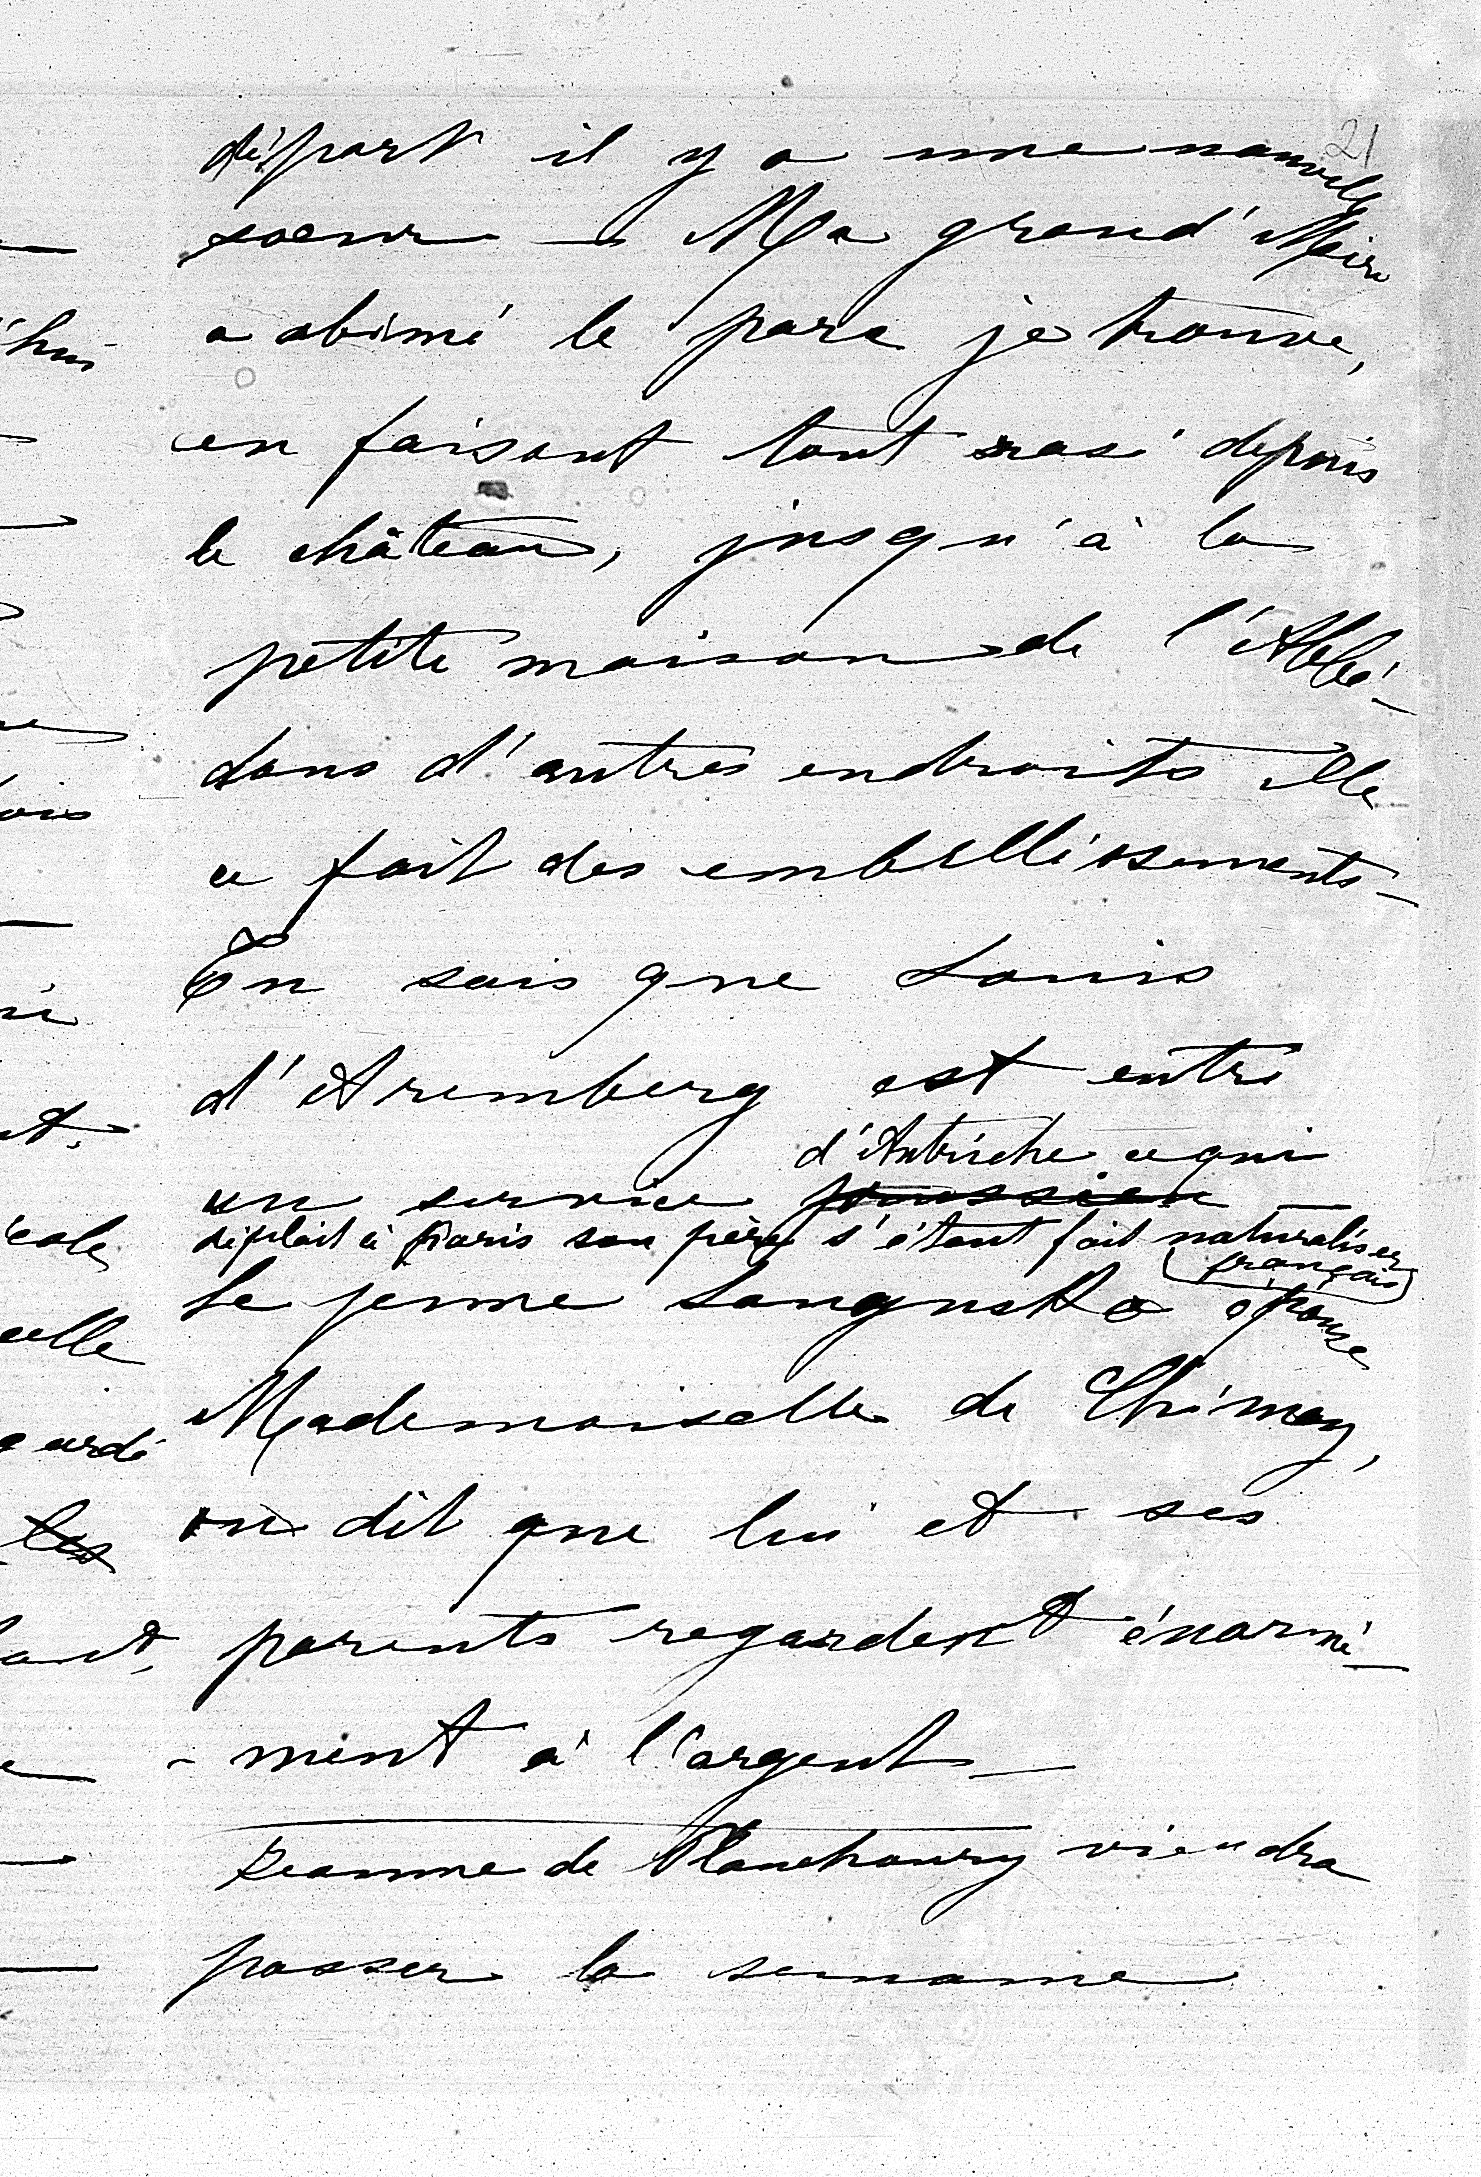 21
départ il y a une nouvelle
soeur — Ma grand' Mère
a abimé le parc je trouve,
en faisant tout rasé depuis
le château, jusqu'à la
petite maison de l'Abbé —
dans d'autres endroits elle
a fait des embellissements —
On sais que Louis
d'Aremberg est entré
d'Autriche ce qui
au service prussien
déplait à Paris son père s'étant fait naturaliser
(français)
Le jeune Sangusko épouse
Mademoiselle de Chimay,
on dit que lui et ses
parents regardent énormé-
-ment à l'argent —
Jeanne de viendra
passer la semaine